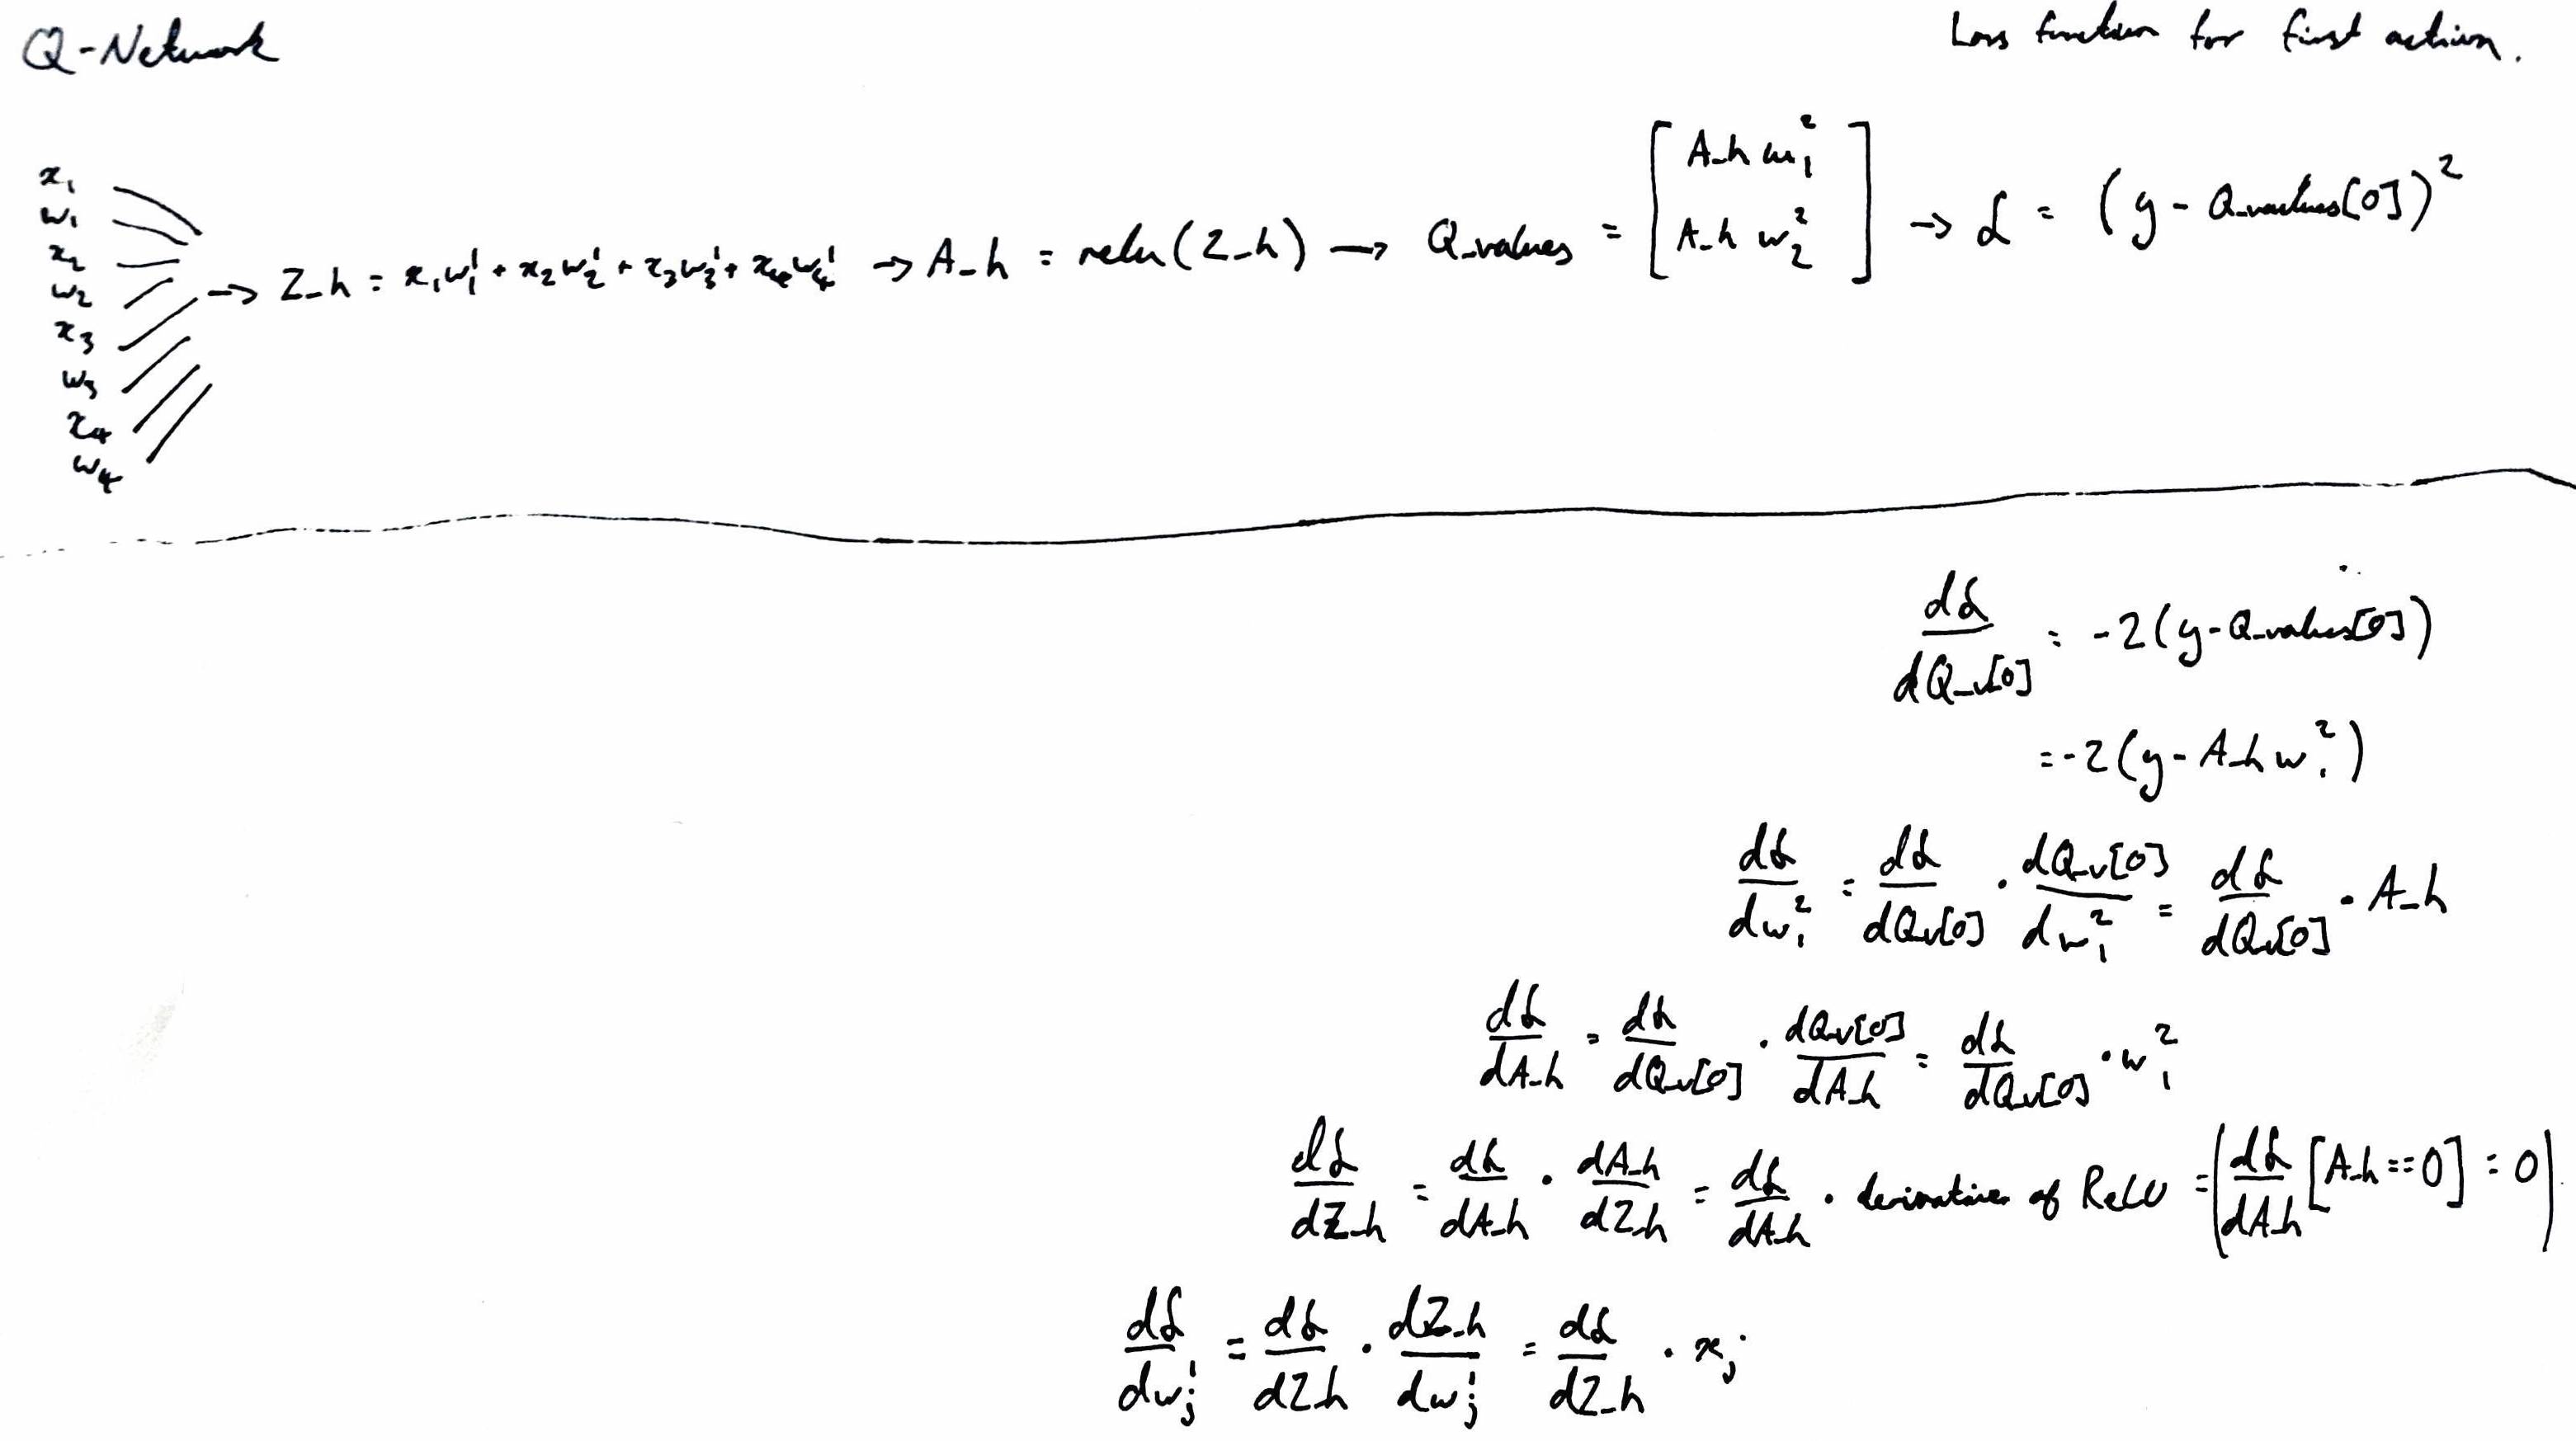 Q-Network
Loss function for first action.
x₁
w₁
x₂
w₂
x₃
w₃
x₄
w₄
→ Z_h = x₁w₁¹ + x₂w₂¹ + x₃w₃¹ + x₄w₄¹ → A_h = relu(Z_h) → Q_values = [A_h w₁² A_h w₂²] → L = (y - Q_values[0])²
dL/dQ_v[0] = -2(y - Q_values[0])
= -2(y - A_h w₁²)
dL/dw₁² = dL/dQ_v[0] · dQ_v[0]/dw₁² = dL/dQ_v[0] · A_h
dL/dA_h = dL/dQ_v[0] · dQ_v[0]/dA_h = dL/dQ_v[0] · w₁²
dL/dZ_h = dL/dA_h · dA_h/dZ_h = dL/dA_h · derivative of ReLU = (dL/dA_h [A_h==0] = 0)
dL/dwⱼ¹ = dL/dZ_h · dZ_h/dwⱼ¹ = dL/dZ_h · xⱼ